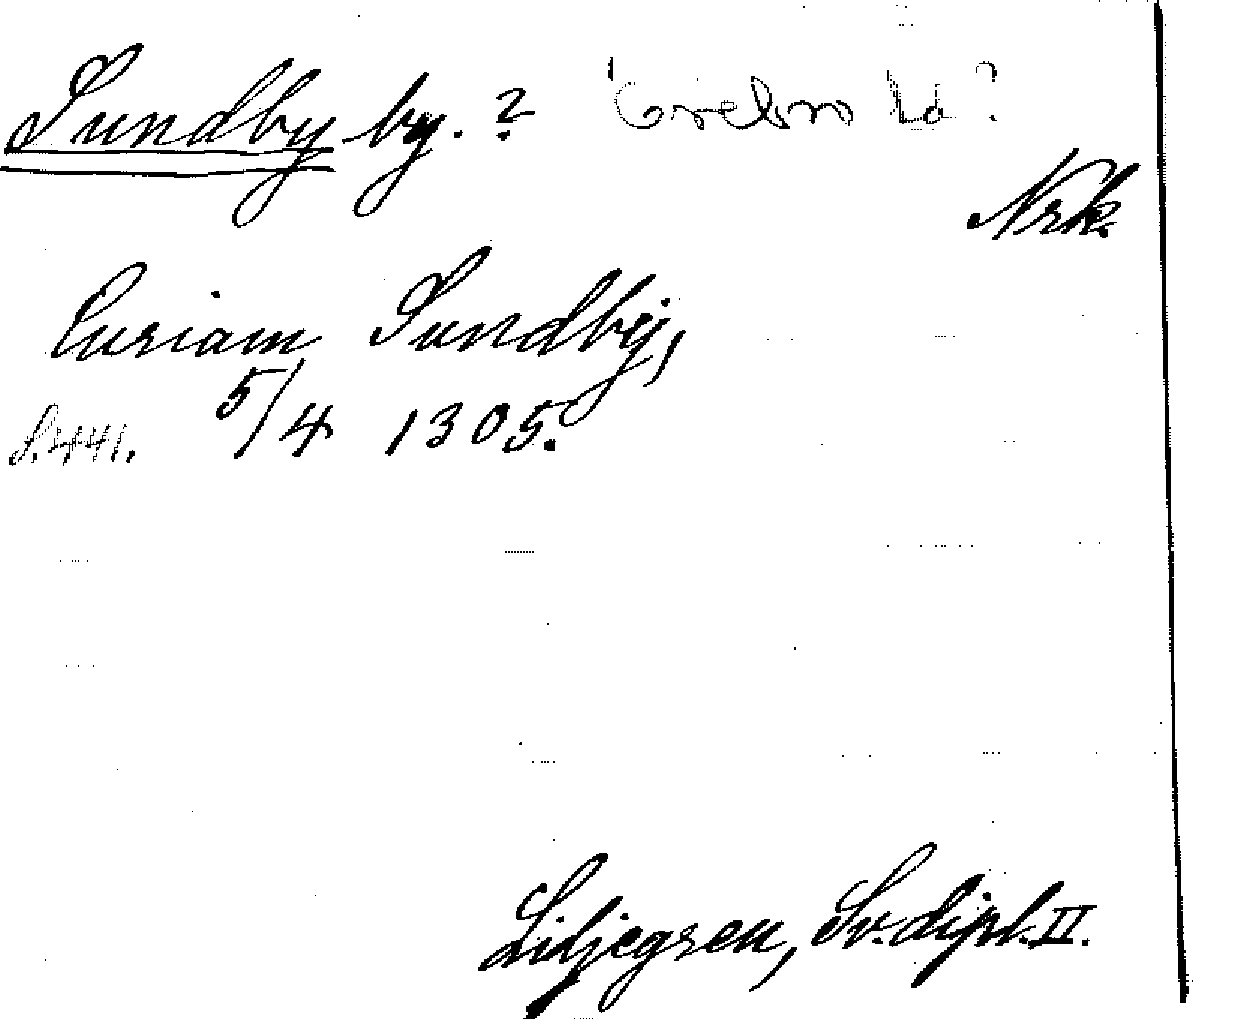 Sundby by.? Örebro ld?
Nrk.
Curiam Sundby,
S. 441. 5/4 1305.
Liljegren, Sv. dipl. II.